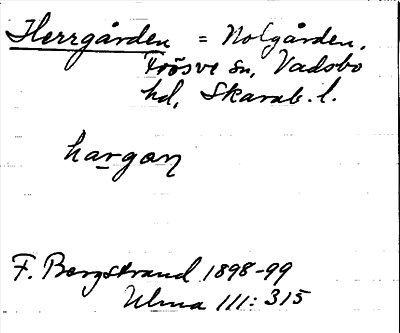 Herrgården = Nolgården,
Frösve sn, Vadsbo
hd, Skarab. l.
hargan
F. Bergstrand 1898-99
Ulma 111: 315